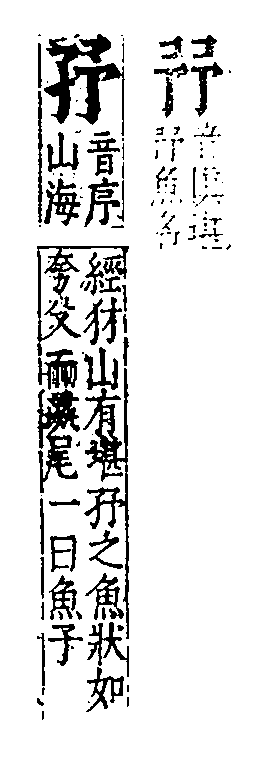 㐨
音與堪
㐨魚名
㐨
音序
山海
經犲山有堪㐨之魚狀如
夸父而彘尾一曰魚子